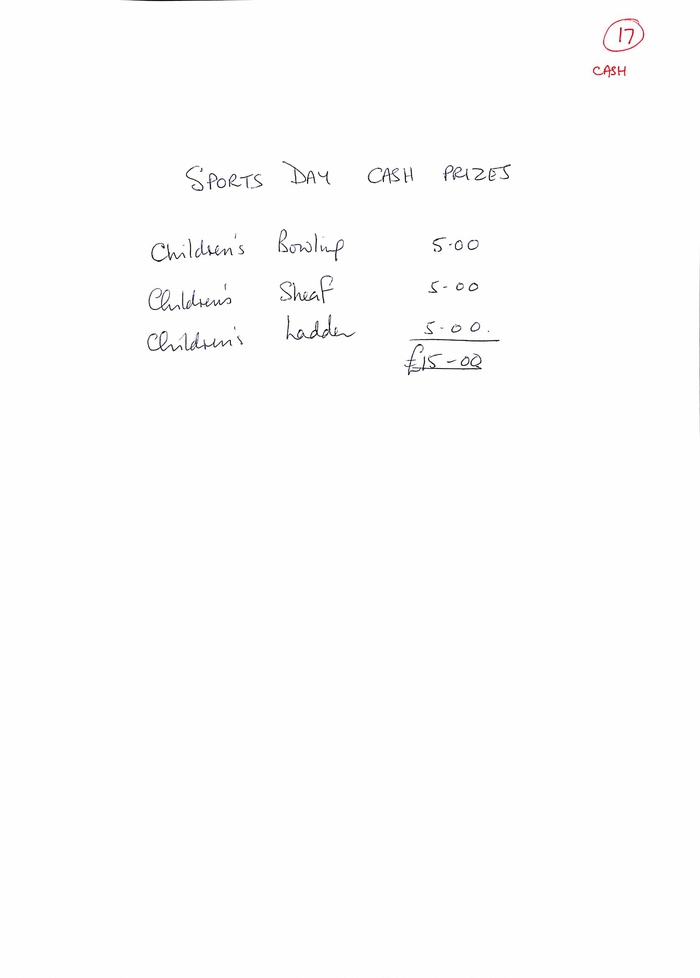 17
CASH
SPORTS DAY CASH PRIZES
Children's Bowling 5.00
Children's Sheaf 5-00
Children's Ladder 5.00.
£15-00